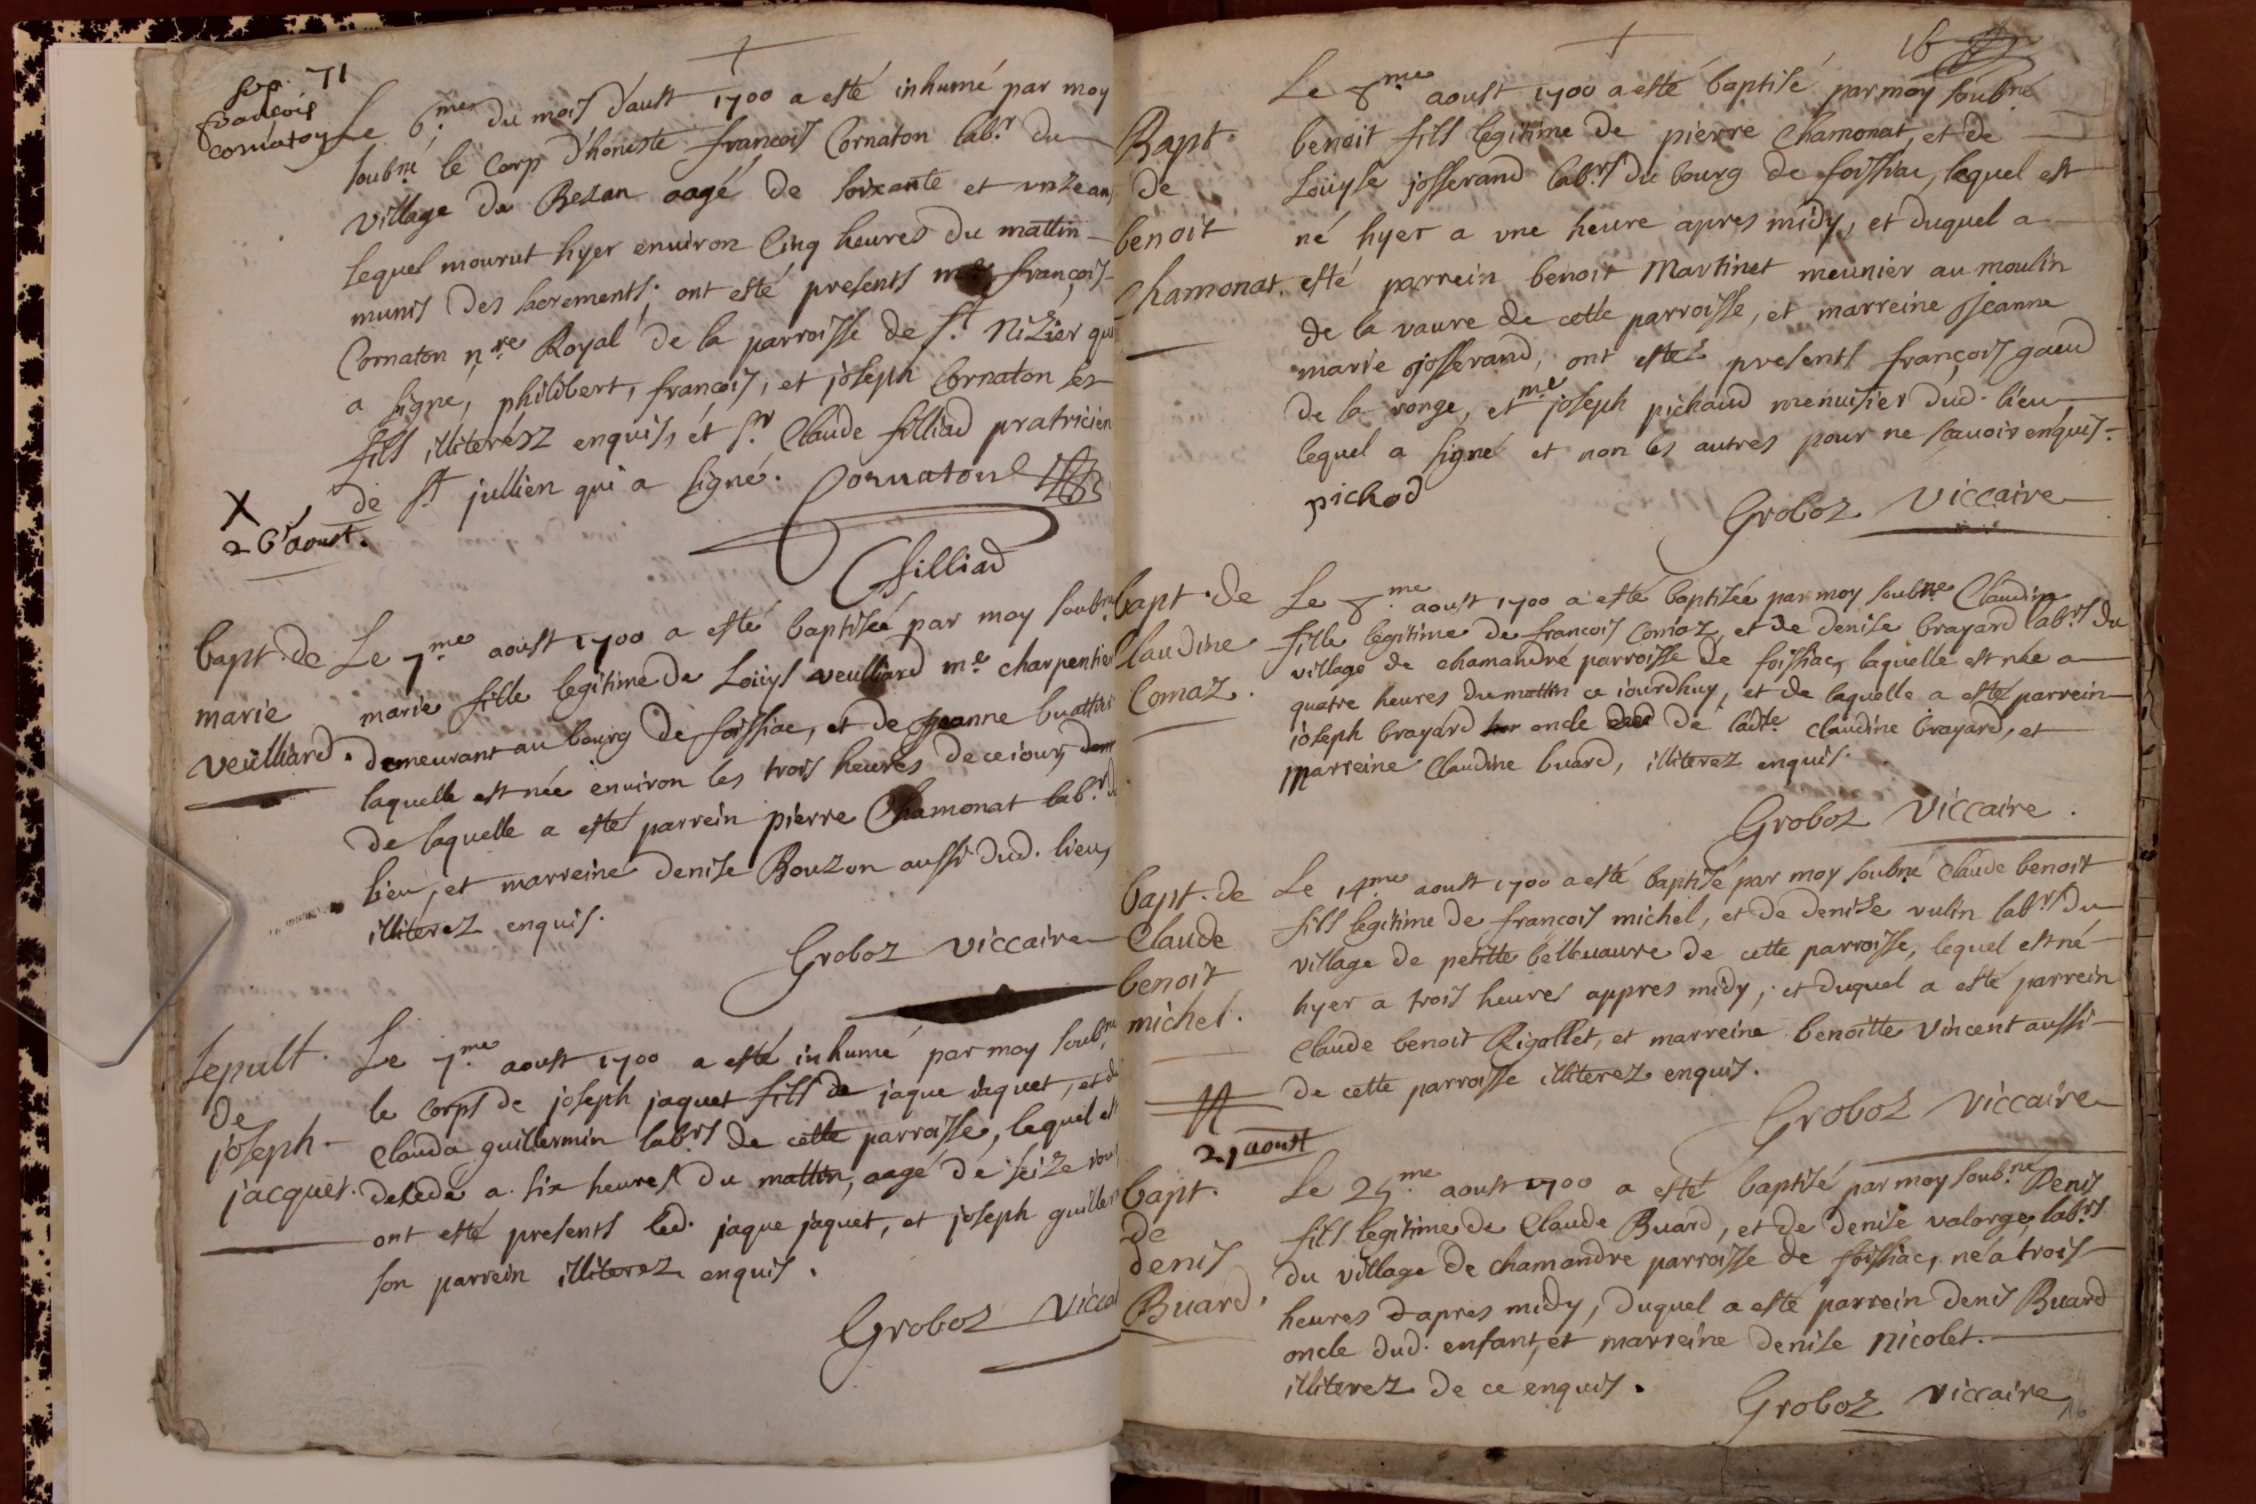 sep. 71
françois
cornaton
Le 6.me du mois d'aust 1700 a esté inhumé par moy
soubné le corp d'honeste françois Cornaton lab.r du
village de Bezan aagé de soixante et vnze ans
lequel mourut hyer enuiron Cinq heures du mattin
munis des sacrements; ont esté presents françois
Cornaton n.re Royal de la parroisse de s.t Nizier qui
a signé, philibert, françois, et joseph Cornaton ses
fils illiteréz enquis, et s.r Claude filliad pratricien
de s.t jullien qui a signé. Cornaton
X
26 aoust.
filliad
bapt. de
marie
veulliard.
Le 7.me aoust 1700 a esté baptiseé par moy soubne
marie fille legitime de Loüys veulliard m.e charpentier
demeurant au bourg de foissiac, et de jeanne
laquelle est née enuiron les trois heures de ce iour,
de laquelle a esté parrein pierre Chamonat lab.r
lieu, et marreine denise Bouzon aussi dud. lieu,
illiterez enquis.
Groboz viccaire
sepult.
de
joseph
jacquet.
Le 7.me aoust 1700 a esté inhumé par moy soub.ne
le corps de joseph jaquet fils de jaque iaquet, et de
Clauda guillermin lab.rs de cette parroisse, lequel est
dececdé a six heures du mattin, aagé de seize iours
ont esté presents led. jaque jaquet, et joseph
son parrein illiterez enquis.
Groboz vicca
16
Bapt.
de
benoit
Chamonat.
Le 8.me aoust 1700 a esté baptisé par moy soubné
benoit fils legitime de pierre Chamonat, et de
Loüyse josserand lab.rs du bourg de foissiac, lequel est
né hyer a vne heure apres midy, et duquel a
esté parrein benoit Martinet meunier au moulin
de la vaure de cette parroisse, et marreine jeanne
marie josserand, ont estez presents françois gaud
de la ronge, et m.e joseph pichaud menuisier dud. lieu,
lequel a signé et non les autres pour ne scauoir enquis.
pichod
Groboz viccaire
bapt. de
Claudine
Comaz.
Le 8.me aoust 1700 a esté baptisée par moy soubne Claudine
fille legitime de françois Comaz, et de denise brayard lab.rs du
village de chamandré parroisse de foissiac, laquelle est née a
quatre heures du mattin ce iourdhuy, et de laquelle a esté parrein
joseph brayard oncle de ladte. claudine brayard, et
marreine Claudine buard, illiterez enquis.
Groboz viccaire.
bapt. de
Claude
benoit
michel.
Le 14.me aoust 1700 a esté baptisé par moy soubné Claude benoit
fils legitime de françois michel, et de denise vulin lab.rs du
village de petitte belleuaure de cette parroisse, lequel est né
hyer a trois heures appres midy, et duquel a esté parrein
Claude benoit Rigollet, et marreine benoitte vincent aussi
de cette parroisse illiterez enquis.
Groboz viccaire
aoust
bapt.
de
denis
Buard.
Le 25.me aoust 1700 a esté baptisé par moy soub.né Denis
fils legitime de Claude Buard, et de denise valorge, lab.rs
du village de chamandre parroisse de foissiac, né a trois
heures d'apres midy, duquel a esté parrein denis Buard
oncle dud. enfant, et marreine denise nicolet.
illiterez de ce enquis.
Groboz viccaire
16